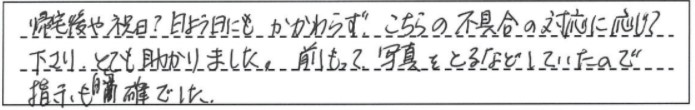 帰宅後や祝日?日よう日にも かかわらず、こちらの不具合の対応に応じて
下さり、とても助かりました。前もって写真をとるなどしていたので
指示も明確でした。